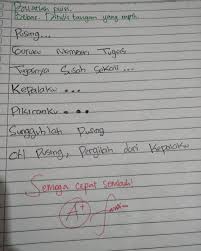 Buatlah puisi.
Bebas. Ditulis dengan yang rapih.
Pusing...
Guruku Memberi Tugas
Tugasnya Susah Sekali...
Kepalaku...
Pikiranku...
Sungguhlah Pusing
Oh Pusing, Pergilah dari Kepalaku
Semoga cepat sembuh!
A+